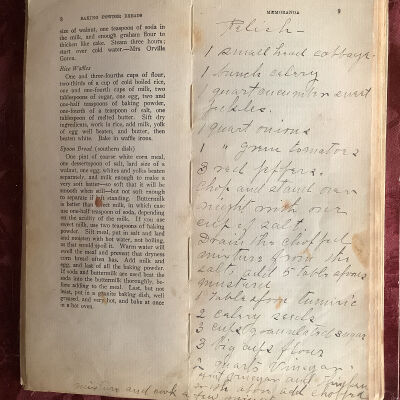 8 BAKING POWDER BREADS
size of walnut, one teaspoon of soda in
the milk, and enough graham flour to
thicken like cake. Steam three hours;
start over cold water.—Mrs Orville
Rice Waffles
One and three-fourths cups of flour,
two-thirds of a cup of cold boiled rice,
one and one-fourth cups of milk, two
tablespoons of sugar, one egg, two and
one-half teaspoons of baking powder,
one-fourth of a teaspoon of salt, one
tablespoon of melted butter. Sift dry
ingredients, work in rice, add milk, yolk
of egg well beaten, and butter, then
beaten white. Bake in waffle irons.
Spoon Bread (southern dish)
One pint of coarse white corn meal,
one dessertspoon of salt, lard size of a
walnut, one egg, whites and yolks beaten
separately, and milk enough to make a
very soft batter—so soft that it will be
smooth when stirred—but not soft enough
to separate if left standing. Buttermilk
is better than sweet milk, in which case
use one-half teaspoon of soda, depending
on the acidity of the milk. If you use
sweet milk, use two teaspoons of baking
powder. Sift meal, put in salt and lard
and moisten with hot water, not boiling,
as that would spoil it. Warm water will
swell the meal and prevent that dryness
corn bread often has. Add milk and
egg, and last of all the baking powder.
If soda and buttermilk are used beat the
soda into the buttermilk thoroughly, be-
fore adding to the meal. Last, but not
least, put in a granite baking dish, well
greased, and very hot, and bake at once
in a hot oven.
MEMORANDA 9
Relish—
1 small head cabbage
1 bunch celery
1 quart cucumber sweet
pickles.
1 quart onions
1 " green tomatoes
3 red peppers.
Chop and stand over
night with one
cup of salt.
Drain the chopped
mixture from the
salt, add 5 tablespoons
mustard
1 tablespoon tumeric
2 celery seeds
3 cups granulated sugar
3 big cups flour
2 quarts vinegar
vinegar and
add chopped
mixture and cook a few